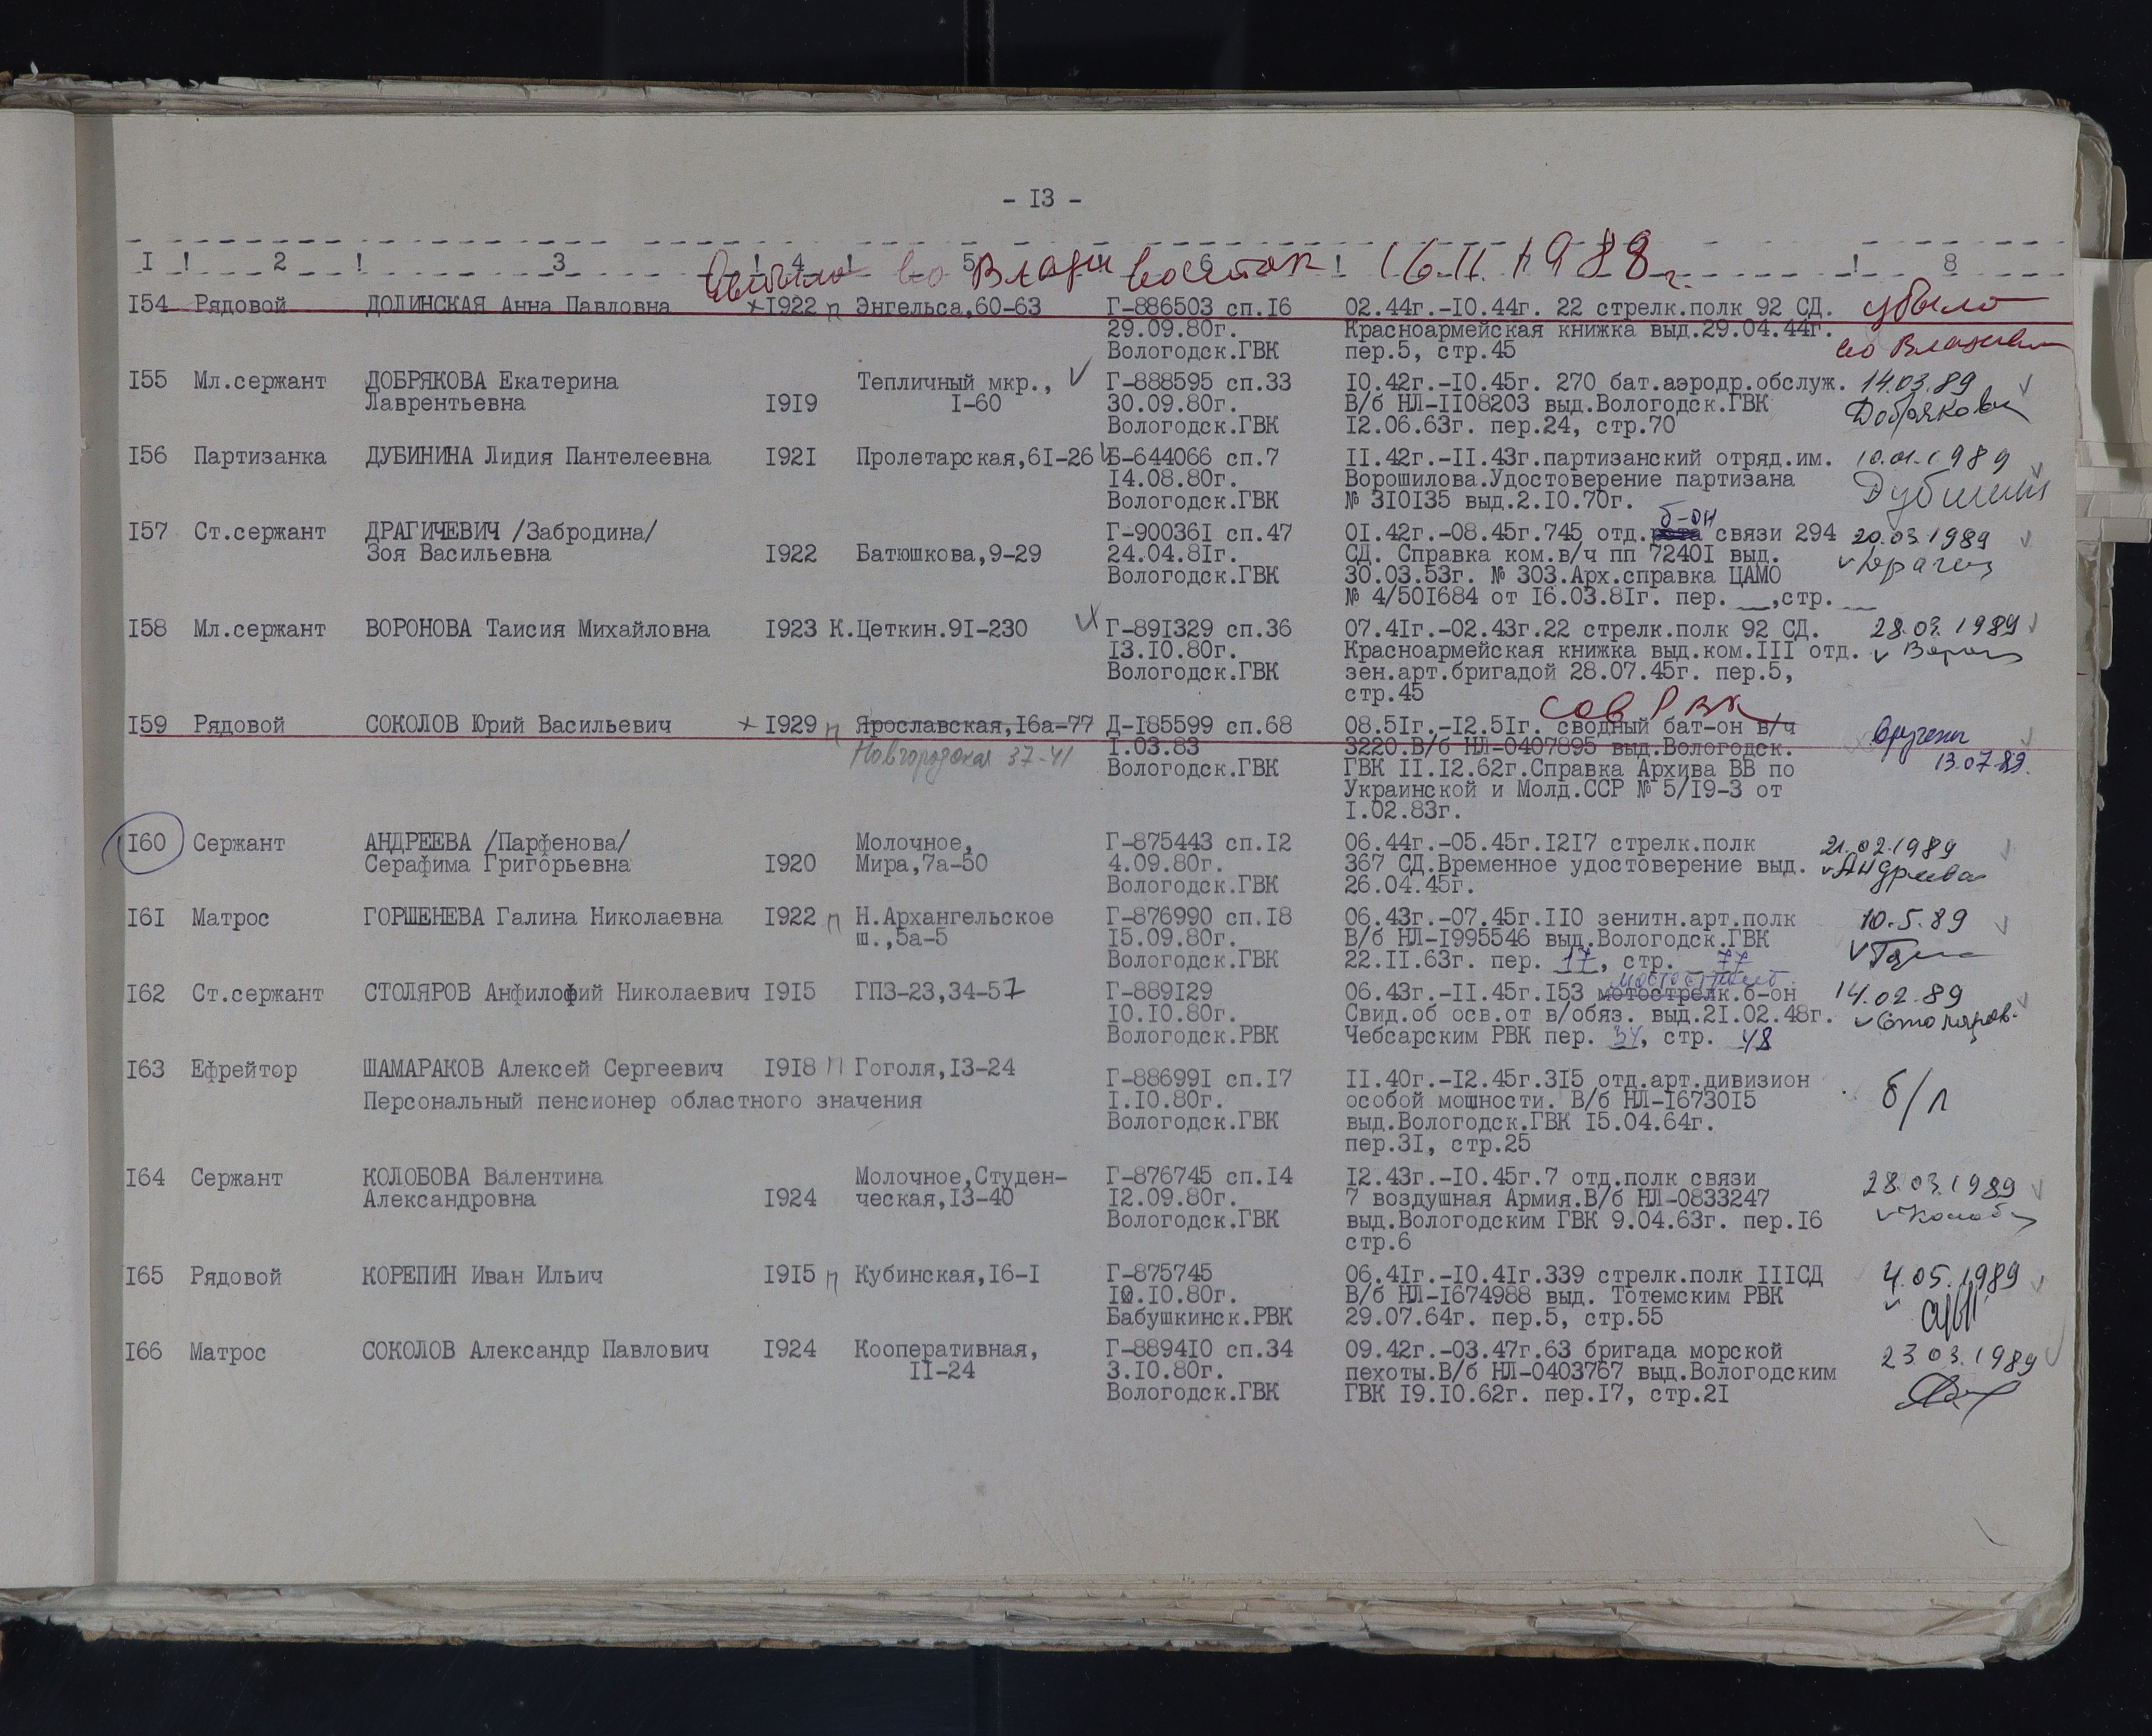 - I3 -
I ! 2 ! 3 ! 4 ! 5 6 ! ! 8
Выбыла во Владивосток 16.11.1988г.
I54 Рядовой ДОЛИНСКАЯ Анна Павловна I922 п Энгельса,60-63 Г-886503 сп.I6 02.44г.-I0.44г. 22 стрелк.полк 92 СД. убыла
29.09.80г. Красноармейская книжка выд.29.04.44г.
Вологодск.ГВК пер.5, стр.45 во Владив
I55 Мл.сержант ДОБРЯКОВА Екатерина Тепличный мкр., Г-888595 сп.33 I0.42г.-I0.45г. 270 бат.аэродр.обслуж. 14.03.89
Лаврентьевна I9I9 I-60 30.09.80г. В/б НЛ-II08203 выд.Вологодск.ГВК Добрякова
Вологодск.ГВК I2.06.63г. пер.24, стр.70
I56 Партизанка ДУБИНИНА Лидия Пантелеевна I92I Пролетарская,6I-26 Б-644066 сп.7 II.42г.-II.43г.партизанский отряд.им. 10.01.1989
I4.08.80г. Ворошилова.Удостоверение партизана Дубинин
Вологодск.ГВК № 3I0I35 выд.2.I0.70г.
б-он
I57 Ст.сержант ДРАГИЧЕВИЧ /Забродина/ Г-90036I сп.47 0I.42г.-08.45г.745 отд.рота связи 294 20.03.1989
Зоя Васильевна I922 Батюшкова,9-29 24.04.8Iг. СД. Справка ком.в/ч пп 7240I выд. Драгич
Вологодск.ГВК 30.03.53г. № 303.Арх.справка ЦАМО
№ 4/50I684 от I6.03.8Iг. пер. __,стр. __
I58 Мл.сержант ВОРОНОВА Таисия Михайловна I923 К.Цеткин.9I-230 Г-89I329 сп.36 07.4Iг.-02.43г.22 стрелк.полк 92 СД. 28.03.1989
I3.I0.80г. Красноармейская книжка выд.ком.III отд. Ворон
Вологодск.ГВК зен.арт.бригадой 28.07.45г. пер.5,
стр.45
Сов РВК
I59 Рядовой СОКОЛОВ Юрий Васильевич I929 п Ярославская,I6а-77 Д-I85599 сп.68 08.5Iг.-I2.5Iг. сводный бат-он в/ч вручены
Новгородская 37-41 I.03.83 3220.В/б НЛ-0407895 выд.Вологодск. 13.07.89.
Вологодск.ГВК ГВК II.I2.62г.Справка Архива ВВ по
Украинской и Молд.ССР № 5/I9-3 от
I.02.83г.
I60 Сержант АНДРЕЕВА /Парфенова/ Молочное, Г-875443 сп.I2 06.44г.-05.45г.I2I7 стрелк.полк 21.02.1989
Серафима Григорьевна I920 Мира,7а-50 4.09.80г. 367 СД.Временное удостоверение выд. Андреева
Вологодск.ГВК 26.04.45г.
I6I Матрос ГОРШЕНЕВА Галина Николаевна I922 п Н.Архангельское Г-876990 сп.I8 06.43г.-07.45г.II0 зенитн.арт.полк 10.5.89
ш.,5а-5 I5.09.80г. В/б НЛ-I995546 выд.Вологодск.ГВК
Вологодск.ГВК 22.II.63г. пер. 17, стр. 77
мостостроит.
I62 Ст.сержант СТОЛЯРОВ Анфилофий Николаевич I9I5 ГПЗ-23,34-57 Г-889I29 06.43г.-II.45г.I53 мотострелк.б-он 14.02.89
I0.I0.80г. Свид.об осв.от в/обяз. выд.2I.02.48г. Столяров.
Вологодск.РВК Чебсарским РВК пер. 34, стр. 48
I63 Ефрейтор ШАМАРАКОВ Алексей Сергеевич I9I8 п Гоголя,I3-24 Г-88699I сп.I7 II.40г.-I2.45г.3I5 отд.арт.дивизион б/л
Персональный пенсионер областного значения I.I0.80г. особой мощности. В/б НЛ-I6730I5
Вологодск.ГВК выд.Вологодск.ГВК I5.04.64г.
пер.3I, стр.25
I64 Сержант КОЛОБОВА Валентина Молочное,Студен- Г-876745 сп.I4 I2.43г.-I0.45г.7 отд.полк связи 28.03.1989
Александровна I924 ческая,I3-40 I2.09.80г. 7 воздушная Армия.В/б НЛ-0833247 Колоб
Вологодск.ГВК выд.Вологодским ГВК 9.04.63г. пер.I6
стр.6
I65 Рядовой КОРЕПИН Иван Ильич I9I5 п Кубинская,I6-I Г-875745 06.4Iг.-I0.4Iг.339 стрелк.полк IIIСД 4.05.1989
I0.I0.80г. В/б НЛ-I674988 выд. Тотемским РВК
Бабушкинск.РВК 29.07.64г. пер.5, стр.55
I66 Матрос СОКОЛОВ Александр Павлович I924 Кооперативная, Г-8894I0 сп.34 09.42г.-03.47г.63 бригада морской 23.03.1989
II-24 3.I0.80г. пехоты.В/б НЛ-0403767 выд.Вологодским
Вологодск.ГВК ГВК I9.I0.62г. пер.I7, стр.2I